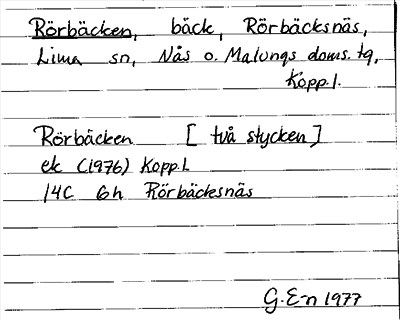 Rörbäcken, bäck, Rörbäcksnäs,
Lima sn, Nås o. Malungs doms. tg,
Kopp. l.
Rörbäcken [två stycken]
ek (1976) Kopp. l
14C 6h Rörbäcksnäs
G. E-n 1977